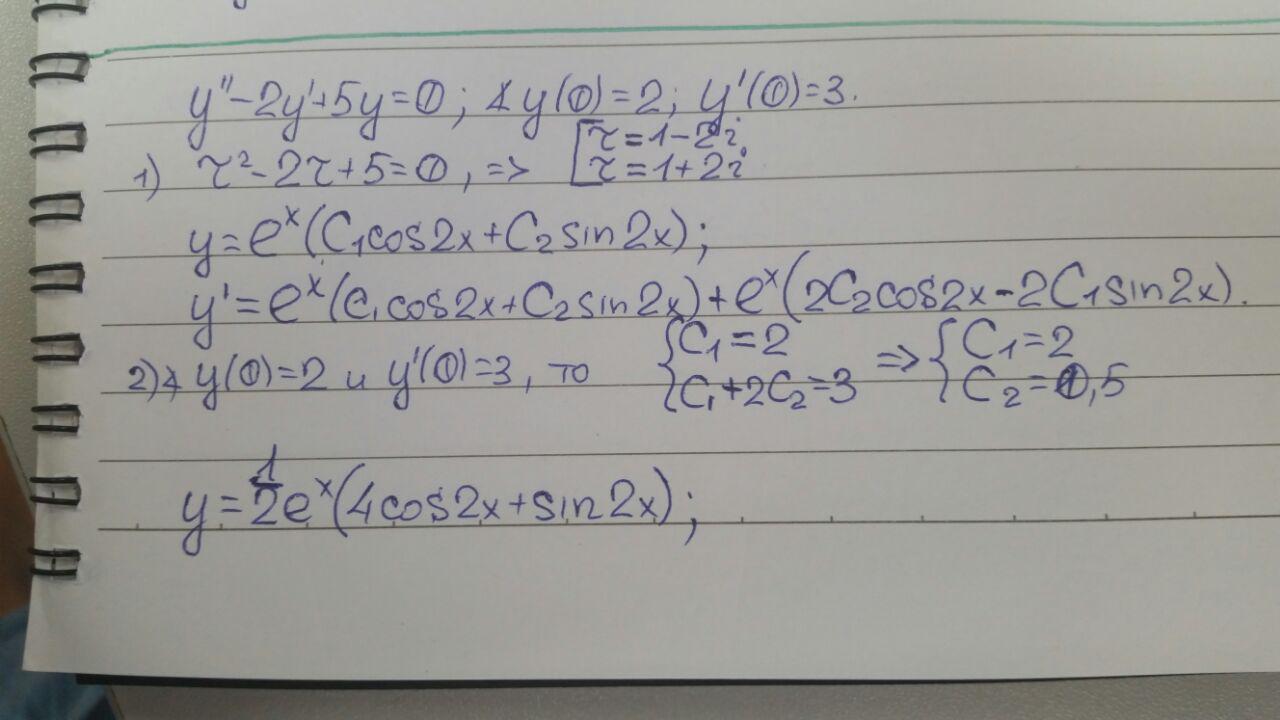 y''-2y'+5y=0; y(0)=2; y'(0)=3.
1) r²-2r+5=0, => [r=1-2i
r=1+2i
y=eˣ(C₁cos2x+C₂sin2x);
y'=eˣ(C₁cos2x+C₂sin2x)+eˣ(2C₂cos2x-2C₁sin2x).
2) y(0)=2 и y'(0)=3, то {C₁=2 C₁+2C₂=3 => {C₁=2 C₂=0,5
y=1/2eˣ(4cos2x+sin2x);